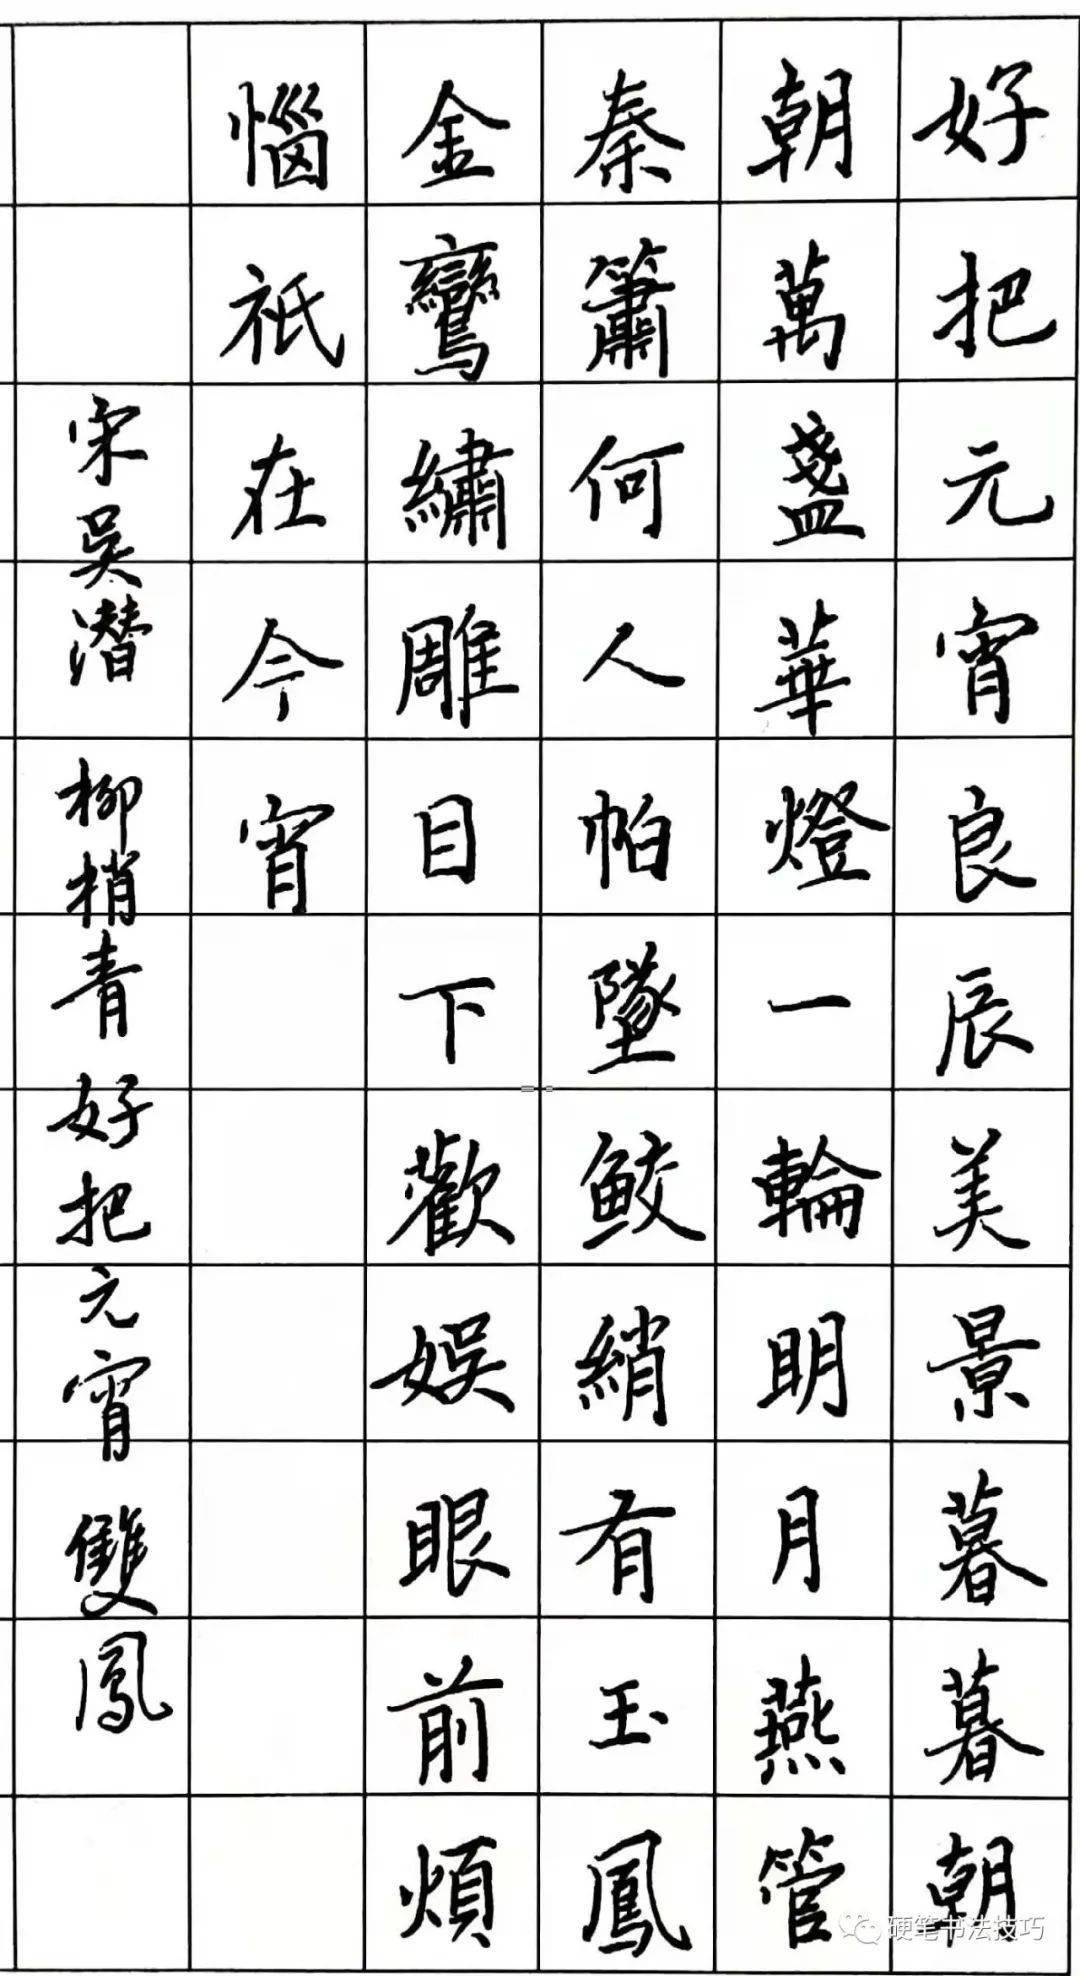 好把元宵良辰美景暮暮朝
朝萬盞華燈一輪明月燕管
秦簫何人帕墜鮫綃有玉鳳
金鸞繡雕目下歡娛眼前煩
惱祇在今宵
宋吳潜 柳梢青 好把元宵 雙鳳
硬笔书法技巧